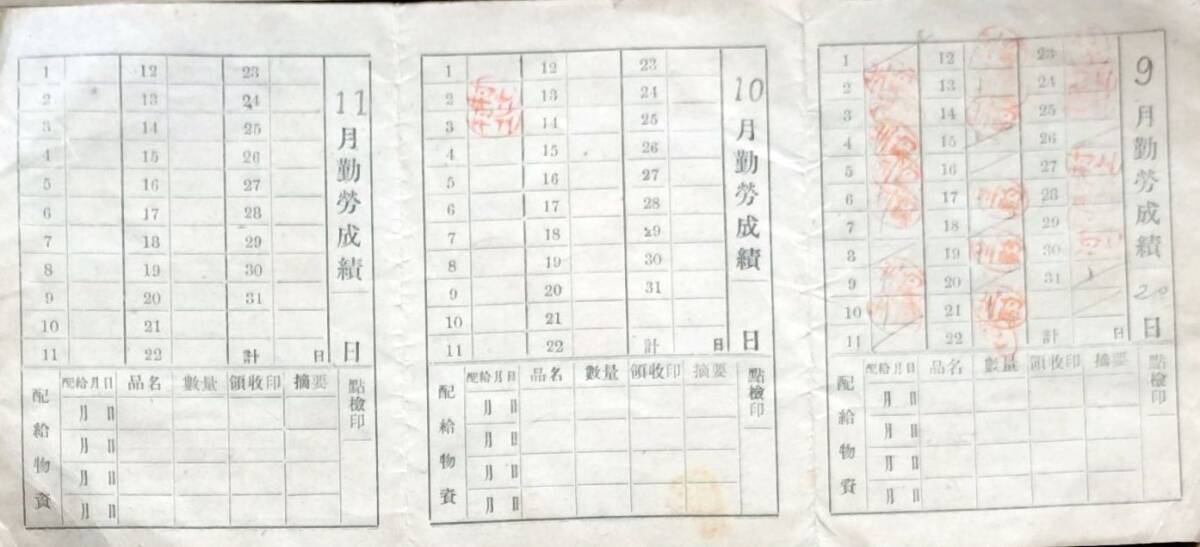 9月勤勞成績 20日
1 12 23
2 13 24
3 14 25
4 15 26
5 16 27
6 17 28
7 18 29
8 19 30
9 20 31
10 21
11 22 計 日
配給物資
配給月日 品名 數量 領收印 摘要 點檢印
月 日
月 日
月 日
月 日
10月勤勞成績 日
1 12 23
2 13 24
3 14 25
4 15 26
5 16 27
6 17 28
7 18 29
8 19 30
9 20 31
10 21
11 22 計 日
配給物資
配給月日 品名 數量 領收印 摘要 點檢印
月 日
月 日
月 日
月 日
11月勤勞成績 日
1 12 23
2 13 24
3 14 25
4 15 26
5 16 27
6 17 28
7 18 29
8 19 30
9 20 31
10 21
11 22 計 日
配給物資
配給月日 品名 數量 領收印 摘要 點檢印
月 日
月 日
月 日
月 日